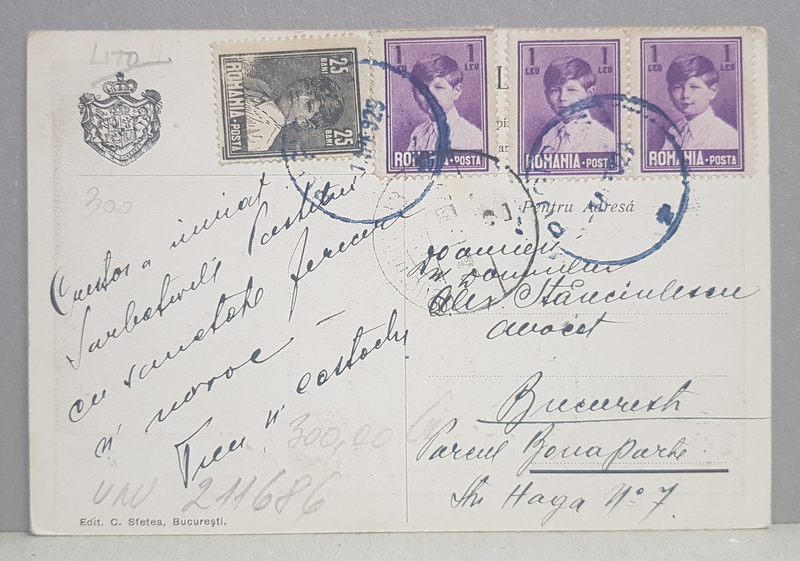 LITO
1 LEU 1 LEU
ROMANIA·POSTA
1 LEU 1 LEU
ROMANIA·POSTA
1 LEU 1 LEU
ROMANIA·POSTA
25 BANI 25 BANI
ROMANIA·POSTA
929
300
Pentru Adresă
Doamnei
și domnului
Alex. Stănciulescu
avocat
București
Parcul Bonaparte
Str Haga No 7
Cristos a inviat
Sarbatorile Pastelui
cu sanatate fericire
si noroc –
300,00
211686
Edit. C. Sfetea, București.